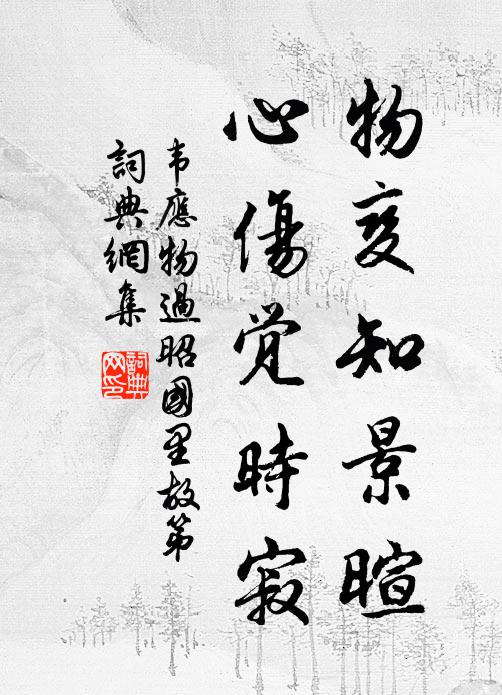 物变知景暄
心傷觉時寂
韦應物過昭國里故第
詞典網集
詞典
网印